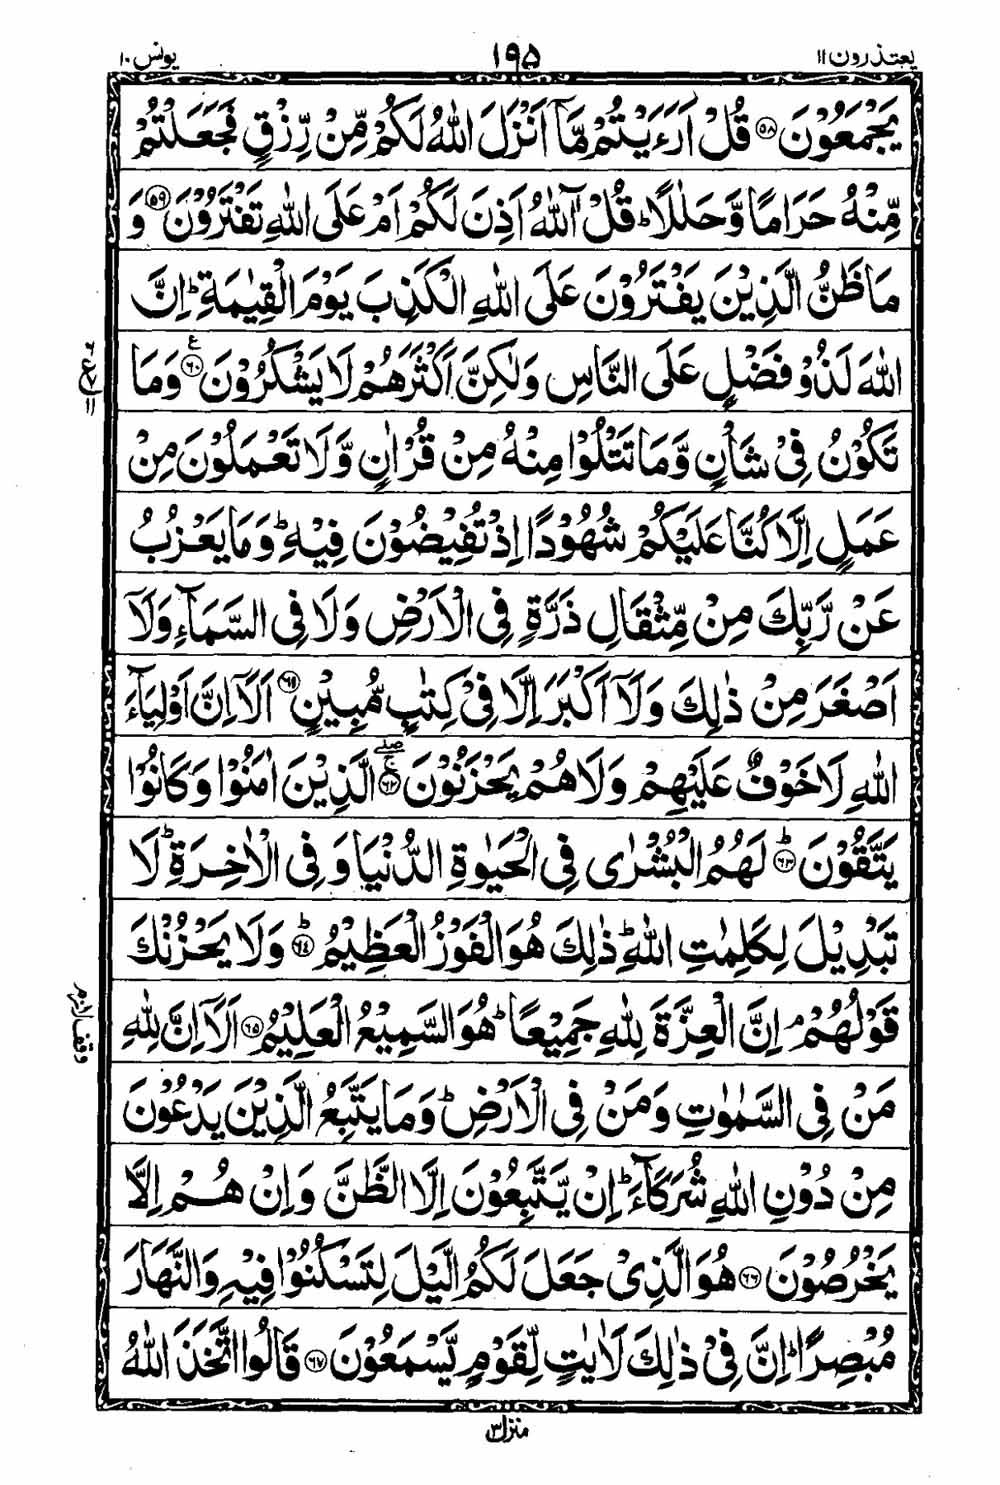 یعتذرون ۱۱ ۱۹۵ یونس ۱۰
یَجْمَعُوْنَ ﴿۵۸﴾ قُلْ اَرَءَیْتُمْ مَّاۤ اَنْزَلَ اللّٰهُ لَكُمْ مِّنْ رِّزْقٍ فَجَعَلْتُمْ
مِّنْهُ حَرَامًا وَّحَلٰلًا ؕ قُلْ آٰللّٰهُ اَذِنَ لَكُمْ اَمْ عَلَی اللّٰهِ تَفْتَرُوْنَ ﴿۵۹﴾ وَ
مَا ظَنُّ الَّذِیْنَ یَفْتَرُوْنَ عَلَی اللّٰهِ الْكَذِبَ یَوْمَ الْقِیٰمَةِ ؕ اِنَّ
اللّٰهَ لَذُوْ فَضْلٍ عَلَی النَّاسِ وَلٰكِنَّ اَكْثَرَهُمْ لَا یَشْكُرُوْنَ ﴿۶۰﴾ ع وَمَا
تَكُوْنُ فِیْ شَاْنٍ وَّمَا تَتْلُوْا مِنْهُ مِنْ قُرْاٰنٍ وَّلَا تَعْمَلُوْنَ مِنْ
عَمَلٍ اِلَّا كُنَّا عَلَیْكُمْ شُهُوْدًا اِذْ تُفِیْضُوْنَ فِیْهِ ؕ وَمَا یَعْزُبُ
عَنْ رَّبِّكَ مِنْ مِّثْقَالِ ذَرَّةٍ فِی الْاَرْضِ وَلَا فِی السَّمَآءِ وَلَاۤ
اَصْغَرَ مِنْ ذٰلِكَ وَلَاۤ اَكْبَرَ اِلَّا فِیْ كِتٰبٍ مُّبِیْنٍ ﴿۶۱﴾ اَلَاۤ اِنَّ اَوْلِیَآءَ
اللّٰهِ لَا خَوْفٌ عَلَیْهِمْ وَلَا هُمْ یَحْزَنُوْنَ ﴿۶۲﴾ ۚۖ الَّذِیْنَ اٰمَنُوْا وَكَانُوْا
یَتَّقُوْنَ ﴿۶۳﴾ ؕ لَهُمُ الْبُشْرٰی فِی الْحَیٰوةِ الدُّنْیَا وَفِی الْاٰخِرَةِ ؕ لَا
تَبْدِیْلَ لِكَلِمٰتِ اللّٰهِ ؕ ذٰلِكَ هُوَ الْفَوْزُ الْعَظِیْمُ ﴿۶۴﴾ ؕ وَلَا یَحْزُنْكَ
قَوْلُهُمْ ۘ اِنَّ الْعِزَّةَ لِلّٰهِ جَمِیْعًا ؕ هُوَ السَّمِیْعُ الْعَلِیْمُ ﴿۶۵﴾ اَلَاۤ اِنَّ لِلّٰهِ
مَنْ فِی السَّمٰوٰتِ وَمَنْ فِی الْاَرْضِ ؕ وَمَا یَتَّبِعُ الَّذِیْنَ یَدْعُوْنَ
مِنْ دُوْنِ اللّٰهِ شُرَكَآءَ ؕ اِنْ یَّتَّبِعُوْنَ اِلَّا الظَّنَّ وَاِنْ هُمْ اِلَّا
یَخْرُصُوْنَ ﴿۶۶﴾ هُوَ الَّذِیْ جَعَلَ لَكُمُ الَّیْلَ لِتَسْكُنُوْا فِیْهِ وَالنَّهَارَ
مُبْصِرًا ؕ اِنَّ فِیْ ذٰلِكَ لَاٰیٰتٍ لِّقَوْمٍ یَّسْمَعُوْنَ ﴿۶۷﴾ قَالُوا اتَّخَذَ اللّٰهُ
ع ۱۱
وقف لازم
منزل ۳